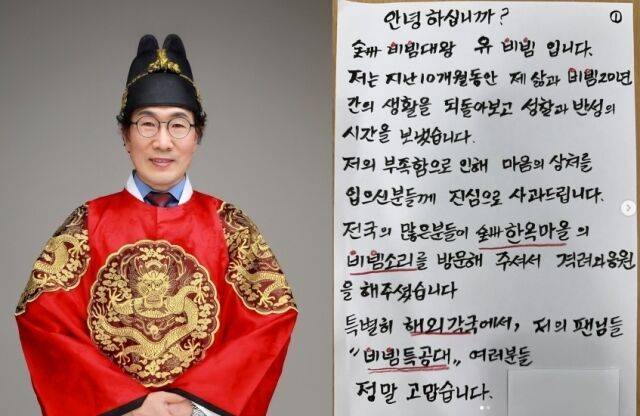 안녕하십니까? ①
全州 비빔대왕 유 비빔 입니다.
저는 지난10개월동안 제 삶과 비빔20년
간의 생활을 되돌아보고 성찰과 반성의
시간을 보냈습니다.
저의 부족함으로 인해 마음의 상처를
입으신분들께 진심으로 사과드립니다.
전국의 많은분들이 全州 한옥마을 의
비빔소리를 방문해 주셔서 격려와응원
을 해주셨습니다
특별히 해외각국에서, 저의 팬님들
"비빔특공대„ 여러분들
정말 고맙습니다.